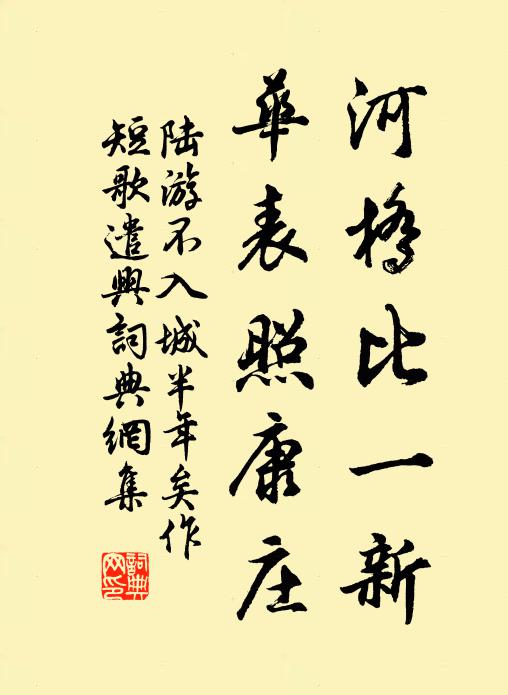 河橋比一新
華表照康庄
陸游不入城半年矣作
短歌遣興詞典網集
詞典
网印